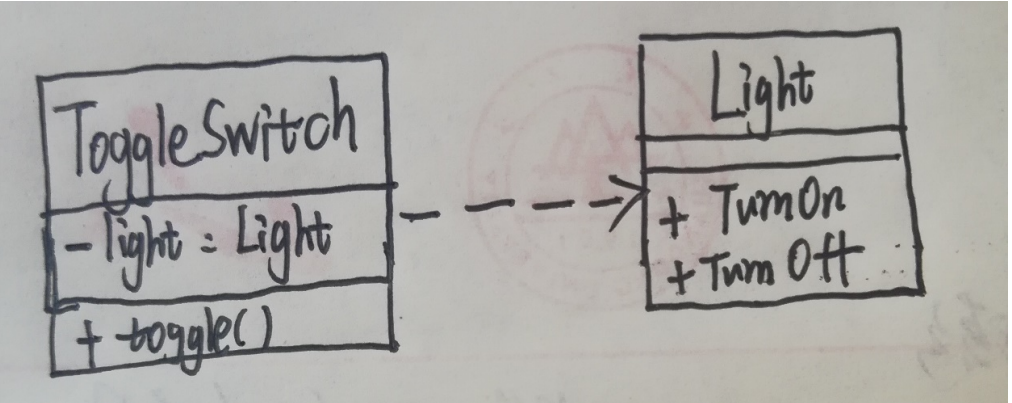 ToggleSwitch
- light : Light
+ toggle()
Light
+ TurnOn
+ Turn Off